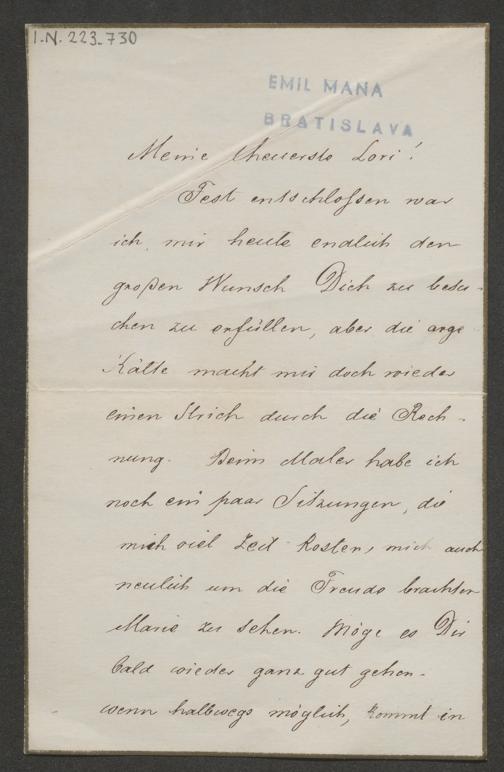 I.N. 223.730
EMIL MANA
BRATISLAVA
Meine theuerste Lori!
Fest entschlossen war
ich, mir heute endlich den
großen Wunsch Dich zu besu-
chen zu erfüllen, aber die arge
Kälte macht mir doch wieder
einen Strich durch die Rech-
nung. Beim Maler habe ich
noch ein paar Sitzungen, die
mich viel Zeit kosten, mich auch
neulich um die Freude brachten
Marie zu sehen. Möge es Dir
bald wieder ganz gut gehen.
wenn halbwegs möglich, kommt in